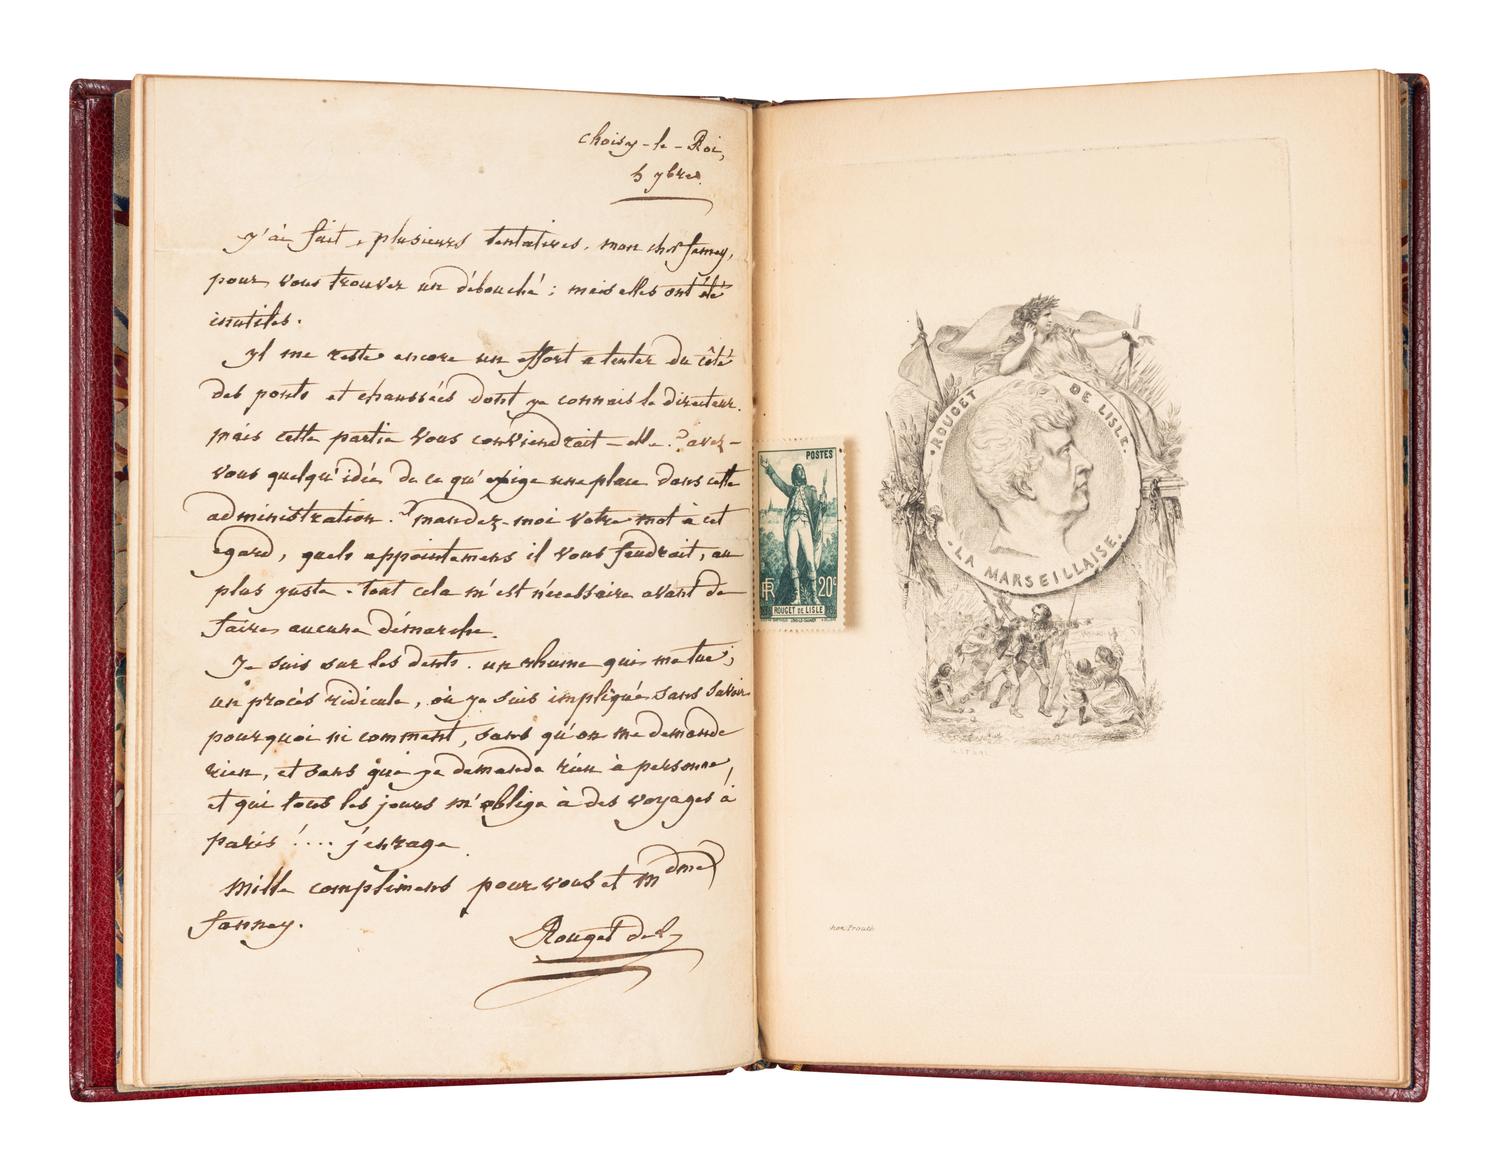 choisy-le-Roi,
5 7bre.
y'ai fait, plusieurs tentatives, mon cher
pour vous trouver un débouché ; mais elles ont été
inutiles.
yl me reste encore un effort a tenter du côté
des ponts et chaussées dont je connais le directeur.
mais cette partie vous conviendrait-elle. ? avez-
vous quelqu'idée de ce qu'exige une place dans cette
administration. ? mandez-moi votre mot à cet
egard, quels appointemens il vous faudrait, au
plus juste. tout cela m'est nécessaire avant de
faire aucune démarche.
Je suis sur les dents. un rhume qui me tue ;
un procès ridicule, où je suis impliqué sans savoir
pourquoi ni comment, sans qu'on me demande
rien, et sans que je demande rien à personne,
et qui tous les jours m'oblige à des voyages à
paris !.... j'enrage.
Mille complimens pour vous et Mdme
Rouget de L
POSTES
RF
20c
ROUGET DE LISLE
• ROUGET DE LISLE.
• LA MARSEILLAISE.